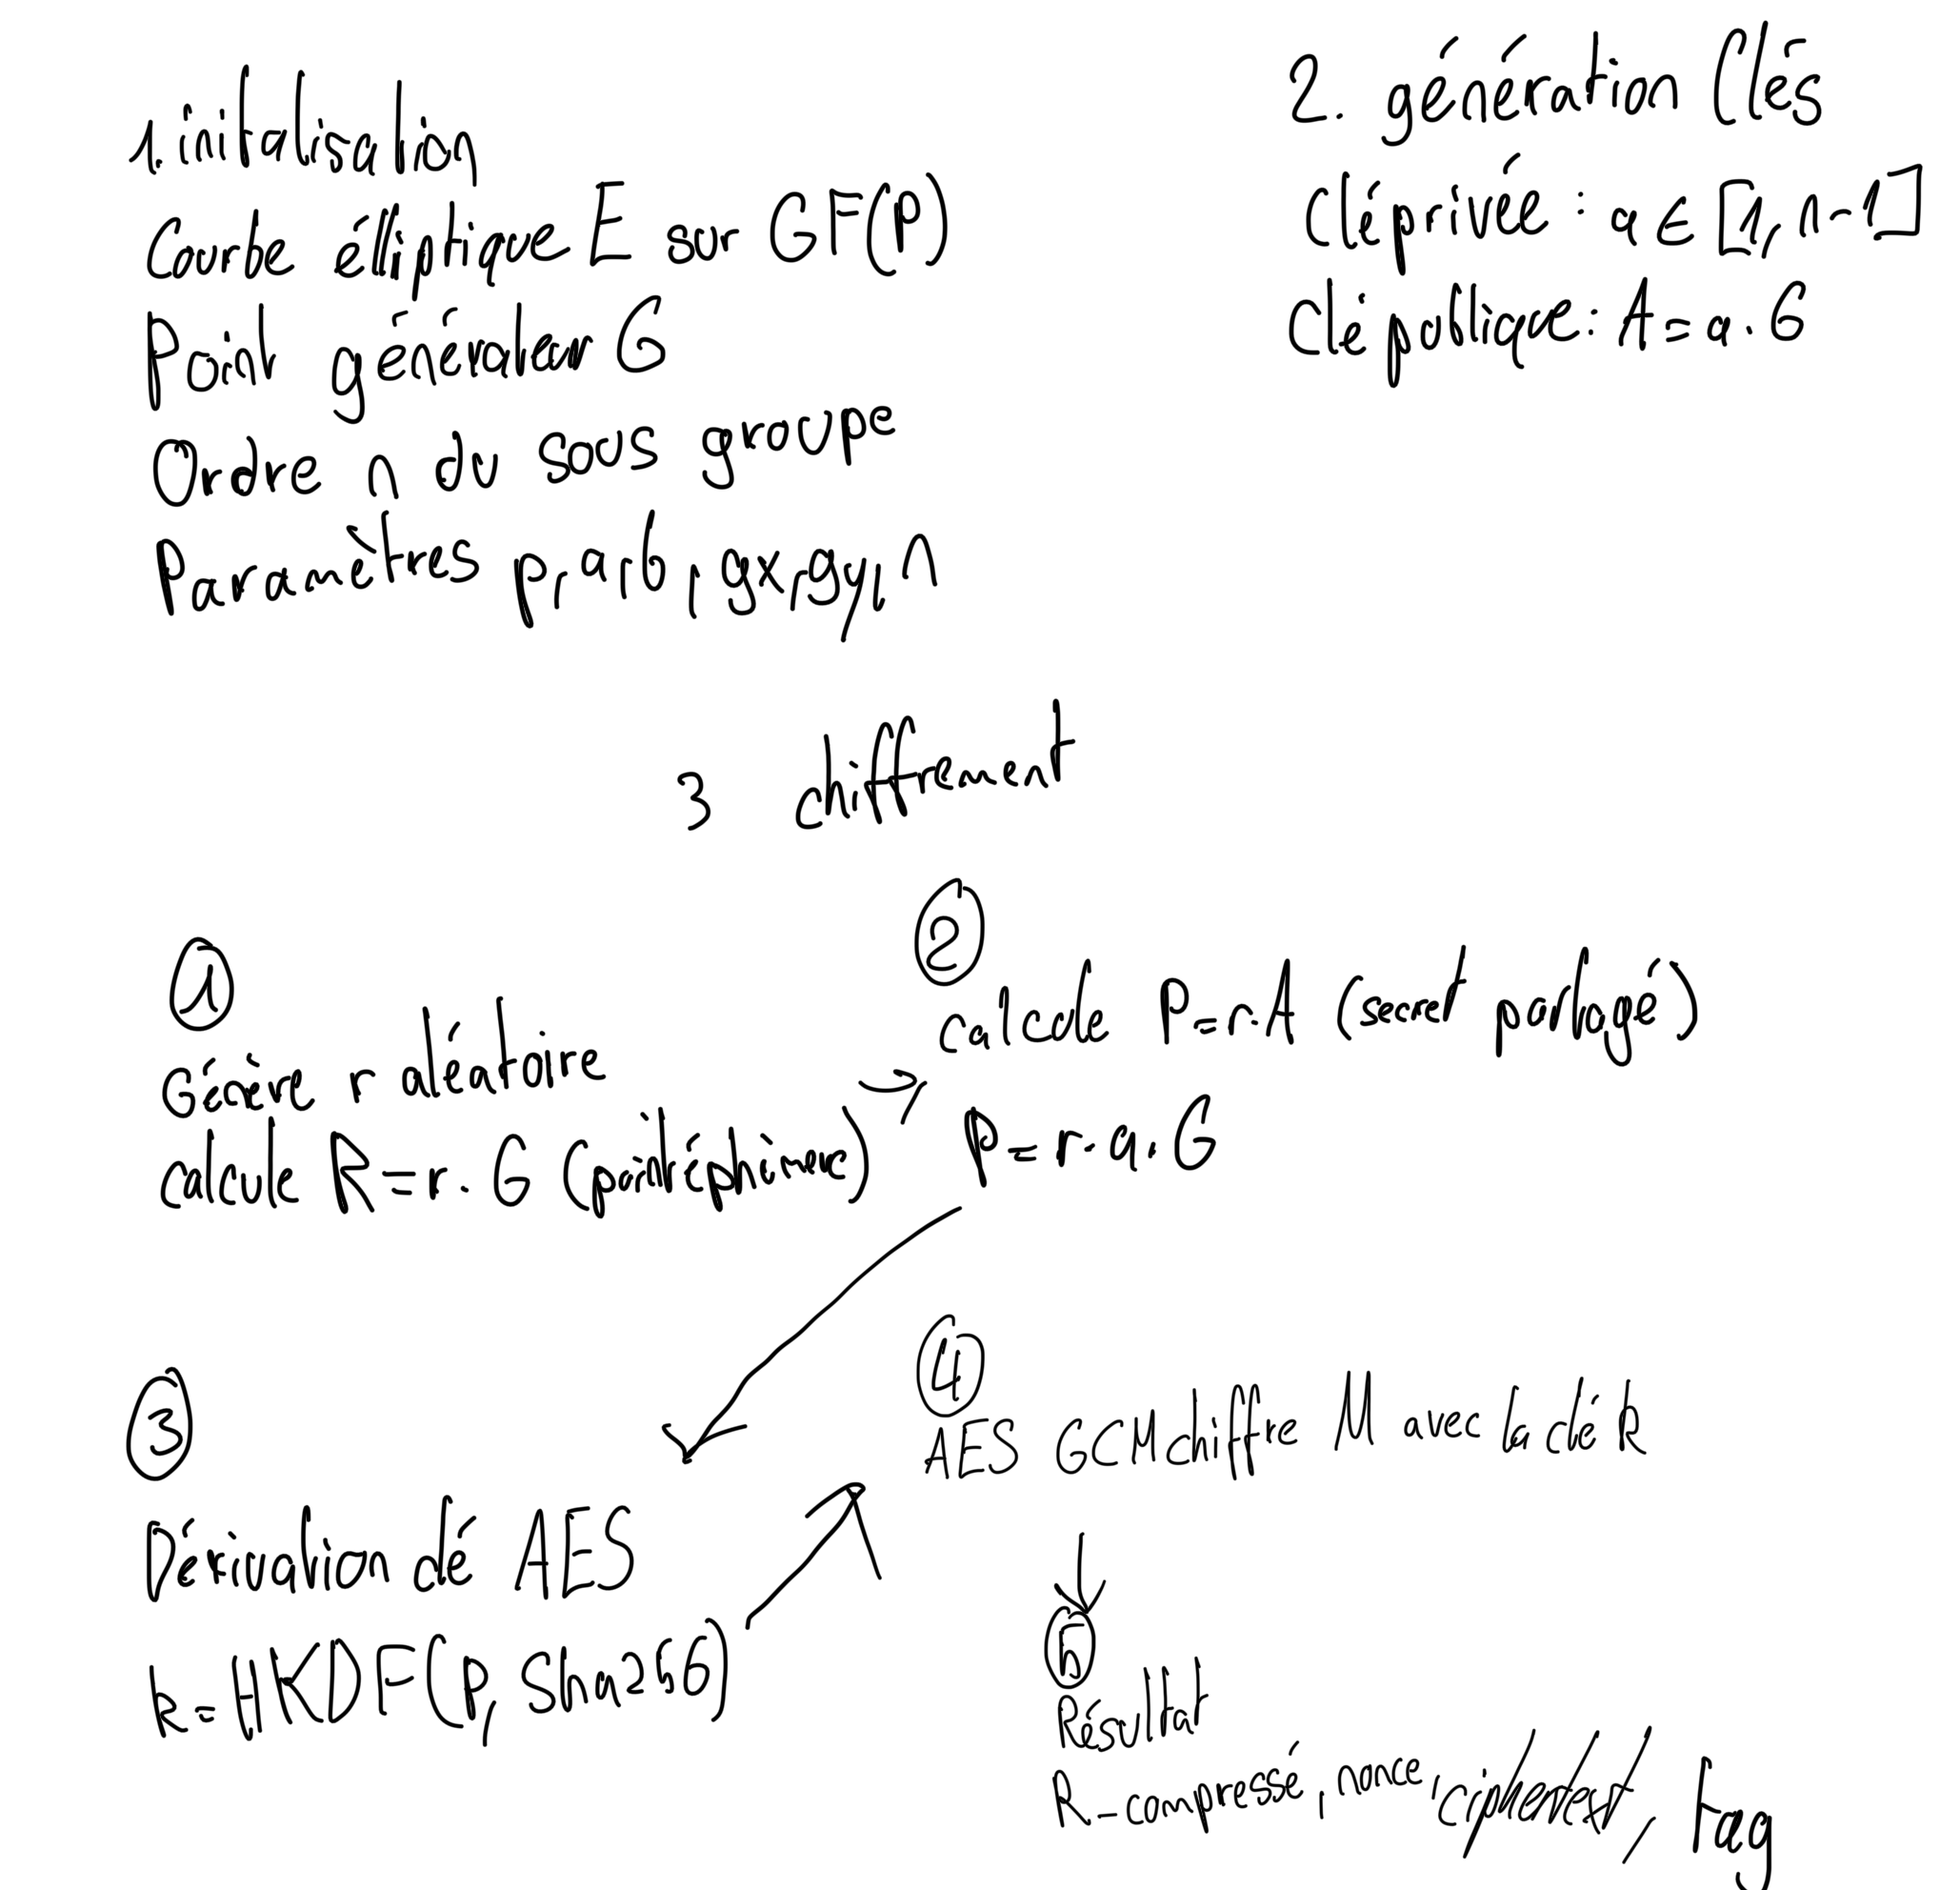 1. initalisation
Courbe élliptique E sur GF(P)
Point générateur G
Ordre n du sous groupe
Paramètres p, a, b, gx, gy, n
2. génération Clés
Clé privée : a ∈ [1, n-1]
Clé publique : A = a. G
3 chiffrement
1
Génère r aléatoire
calcule R = r. G (point éphémère)
→
2
calcule P = r. A (secret partagé)
P = r. a. G
3
Dérivation clé AES
k = HKDF(P, Sha256)
4
AES GCM chiffre M avec la clé k
↓
5
Résultat
R-compressé, nonce, ciphertext, tag